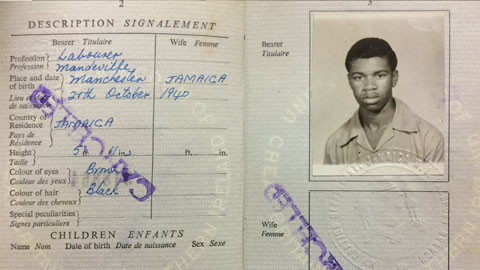 2
DESCRIPTION SIGNALEMENT
Bearer Titulaire Wife Femme
Profession Profession Labourer
Mandeville
Place and date of birth Manchester JAMAICA
Lieu et date de naissance 21th October 1940
Country of Residence JAMAICA
Pays de Résidence
Height Taille 5 ft. in. ft. in.
Colour of eyes Brown
Couleur des yeux
Colour of hair Black
Couleur des cheveux
Special peculiarities
Signes particuliers
CHILDREN ENFANTS
Name Nom Date of birth Date de naissance Sex Sexe
CANCELLED
3
Bearer
Titulaire
Wife
Femme
CANCELLED